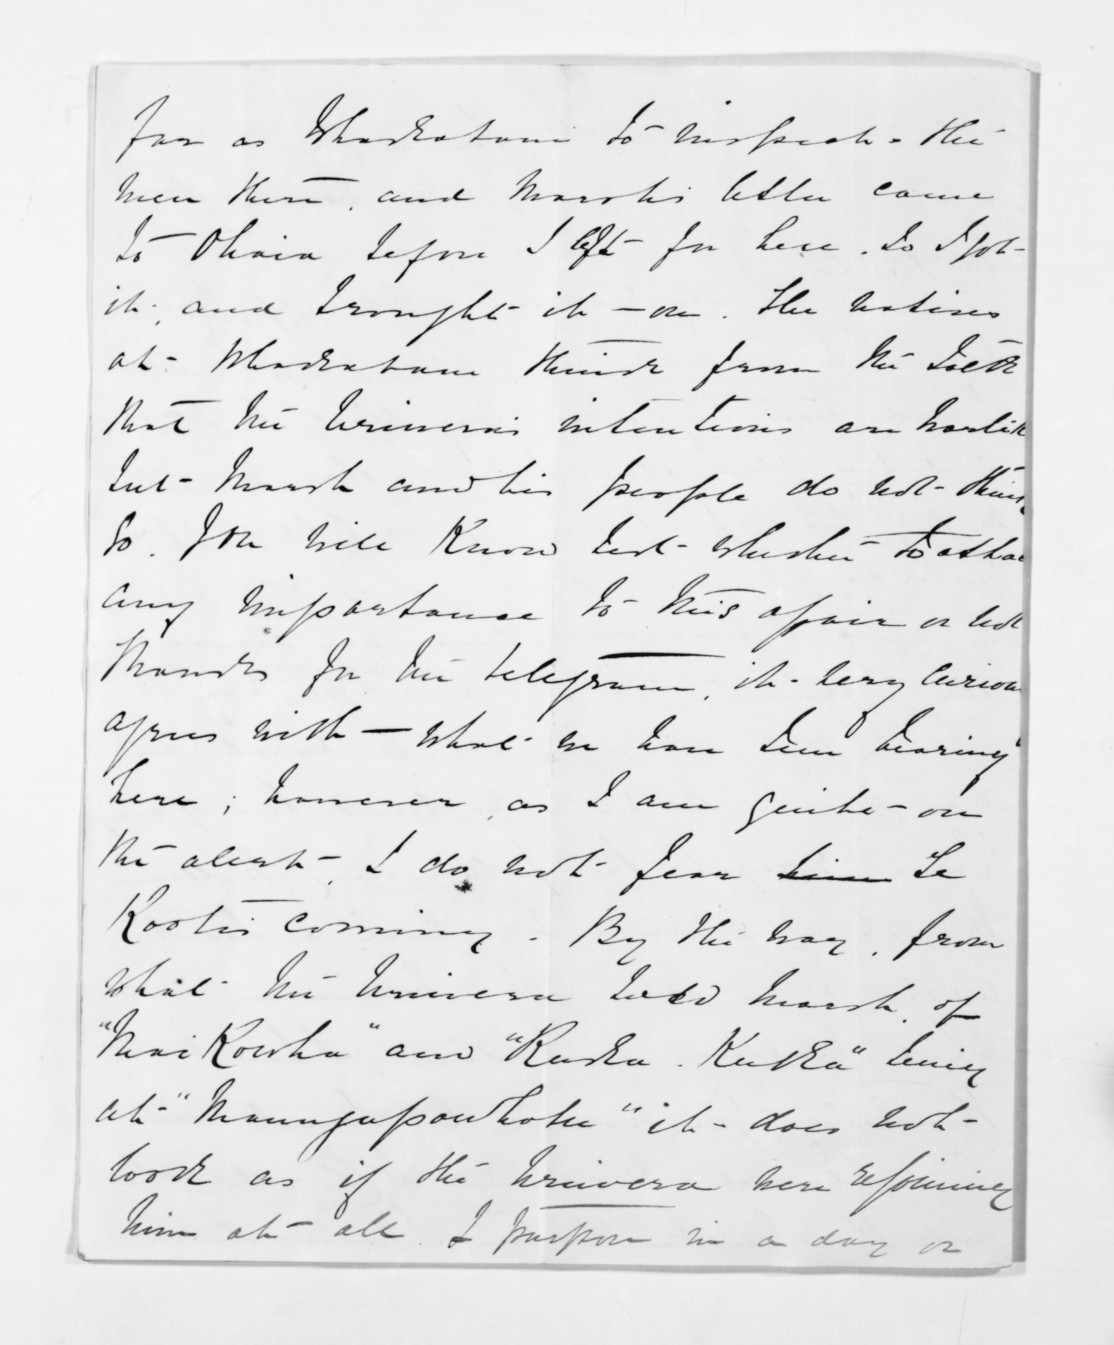 far as Whakatane to inspect the
men there, and Marsh's letter came
to Ohiwa before I left for here. So I got
it, and brought it on. The natives
at Whakatane think from the talk
that the Uriwera's intentions are hostile
but Marsh and his people do not think
so. You will know best whether to attach
any importance to this affair or not
Thanks for the telegram, it very curious
agrees with what we have been hearing
here; however, as I am quite on
the alert, I do not fear Te
Kooti's coming. By the way, from
what the Uriwera told Marsh, of
"Kowha" and "Kereopa" being
at "Maungapowhatu" it does not
look as if the Uriwera were rejoining
him at all. I purpose in a day or